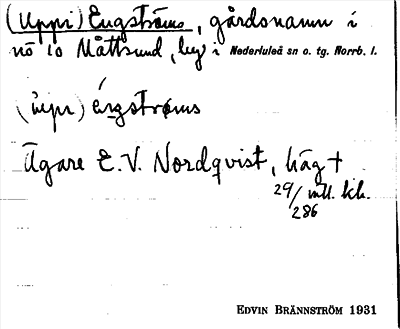 (Uppi) Engströms, gårdsnamn i
nö 10 Måttsund, by i Nederluleå sn o. tg. Norrb. l.
Ägare E.V. Nordqvist, häg +
29/ mtl. kk.
286
EDVIN BRÄNNSTRÖM 1931